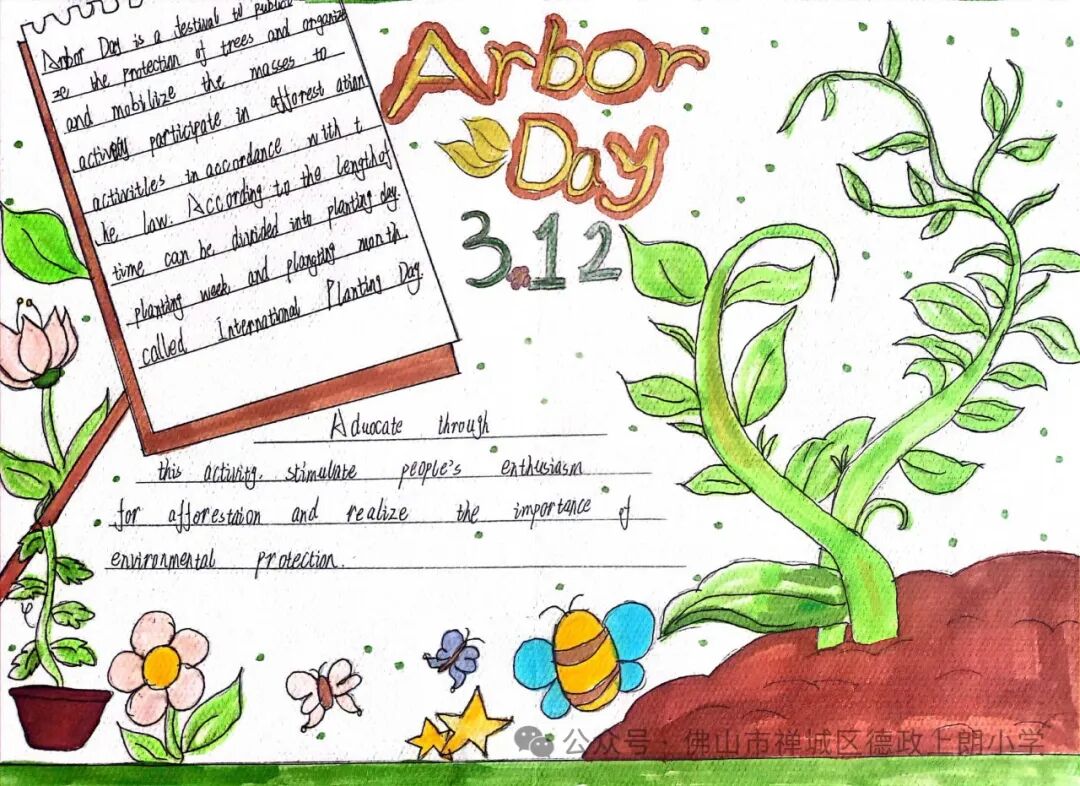 Arbor Day is a festival to public
ze the protection of trees and organize
and mobilize the masses to
activety participate in afforest ation
activitles in accordance with t
he law. According to the lengthof
time can be divided into planting day.
planting week and plangting month
called International Planting Day.
Arbor
Day
3.12
Aduocate through
this activitg. stimulate people's enthusiasm
for afforestaion and realize the importance of
environmental protection.
公众号·佛山市禅城区德政上朗小学